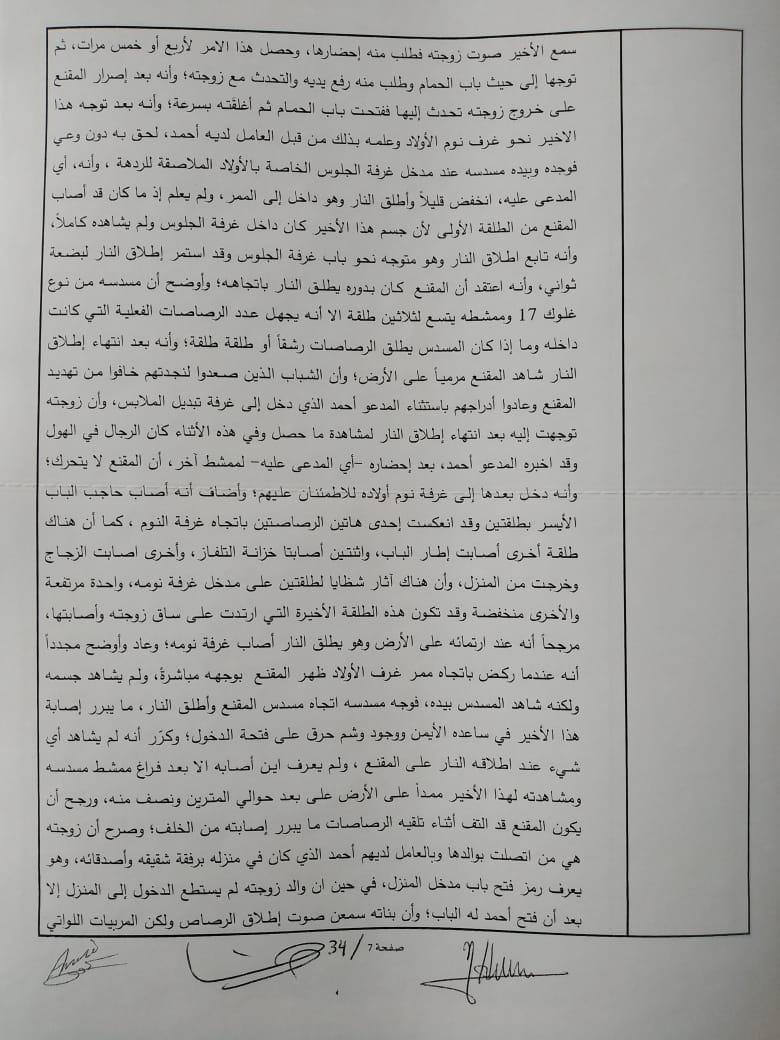 سمع الأخير صوت زوجته فطلب منه إحضارها، وحصل هذا الامر لأربع أو خمس مرات، ثم
توجها إلى حيث باب الحمام وطلب منه رفع يديه والتحدث مع زوجته؛ وأنه بعد إصرار المقنع
على خروج زوجته تحدث إليها ففتحت باب الحمام ثم أغلقته بسرعة؛ وأنه بعد توجه هذا
الاخير نحو غرف نوم الأولاد وعلمه بذلك من قبل العامل لديه أحمد، لحق به دون وعي
فوجده وبيده مسدسه عند مدخل غرفة الجلوس الخاصة بالأولاد الملاصقة للردهة ، وأنه، أي
المدعى عليه، انخفض قليلاً وأطلق النار وهو داخل إلى الممر، ولم يعلم إذ ما كان قد أصاب
المقنع من الطلقة الأولى لأن جسم هذا الأخير كان داخل غرفة الجلوس ولم يشاهده كاملاً،
وأنه تابع اطلاق النار وهو متوجه نحو باب غرفة الجلوس وقد استمر إطلاق النار لبضعة
ثواني، وأنه اعتقد أن المقنع كان بدوره يطلق النار باتجاهه؛ وأوضح أن مسدسه من نوع
غلوك 17 وممشطه يتسع لثلاثين طلقة الا أنه يجهل عدد الرصاصات الفعلية التي كانت
داخله وما إذا كان المسدس يطلق الرصاصات رشقاً أو طلقة طلقة؛ وأنه بعد انتهاء إطلاق
النار شاهد المقنع مرمياً على الأرض؛ وأن الشباب الذين صعدوا لنجدتهم خافوا من تهديد
المقنع وعادوا أدراجهم باستثناء المدعو أحمد الذي دخل إلى غرفة تبديل الملابس، وأن زوجته
توجهت إليه بعد انتهاء إطلاق النار لمشاهدة ما حصل وفي هذه الأثناء كان الرجال في الهول
وقد اخبره المدعو أحمد، بعد إحضاره -أي المدعى عليه- لممشط آخر، أن المقنع لا يتحرك؛
وأنه دخل بعدها إلى غرفة نوم أولاده للاطمئنان عليهم؛ وأضاف أنه أصاب حاجب الباب
الأيسر بطلقتين وقد انعكست إحدى هاتين الرصاصتين باتجاه غرفة النوم ، كما أن هناك
طلقة أخرى أصابت إطار الباب، واثنتين أصابتا خزانة التلفاز، وأخرى اصابت الزجاج
وخرجت من المنزل، وأن هناك آثار شظايا لطلقتين على مدخل غرفة نومه، واحدة مرتفعة
والأخرى منخفضة وقد تكون هذه الطلقة الأخيرة التي ارتدت على ساق زوجته وأصابتها،
مرجحاً أنه عند ارتمائه على الأرض وهو يطلق النار أصاب غرفة نومه؛ وعاد وأوضح مجدداً
أنه عندما ركض باتجاه ممر غرف الأولاد ظهر المقنع بوجهه مباشرةً، ولم يشاهد جسمه
ولكنه شاهد المسدس بيده، فوجه مسدسه اتجاه مسدس المقنع وأطلق النار، ما يبرر إصابة
هذا الأخير في ساعده الأيمن ووجود وشم حرق على فتحة الدخول؛ وكرّر أنه لم يشاهد أي
شيء عند اطلاقه النار على المقنع ، ولم يعرف اين أصابه الا بعد فراغ ممشط مسدسه
ومشاهدته لهذا الأخير ممداً على الأرض على بعد حوالي المترين ونصف منه، ورجح أن
يكون المقنع قد التف أثناء تلقيه الرصاصات ما يبرر إصابته من الخلف؛ وصرح أن زوجته
هي من اتصلت بوالدها وبالعامل لديهم أحمد الذي كان في منزله برفقة شقيقه وأصدقائه، وهو
يعرف رمز فتح باب مدخل المنزل، في حين ان والد زوجته لم يستطع الدخول إلى المنزل إلا
بعد أن فتح أحمد له الباب؛ وأن بناته سمعن صوت إطلاق الرصاص ولكن المربيات اللواتي
صفحة 7 / 34